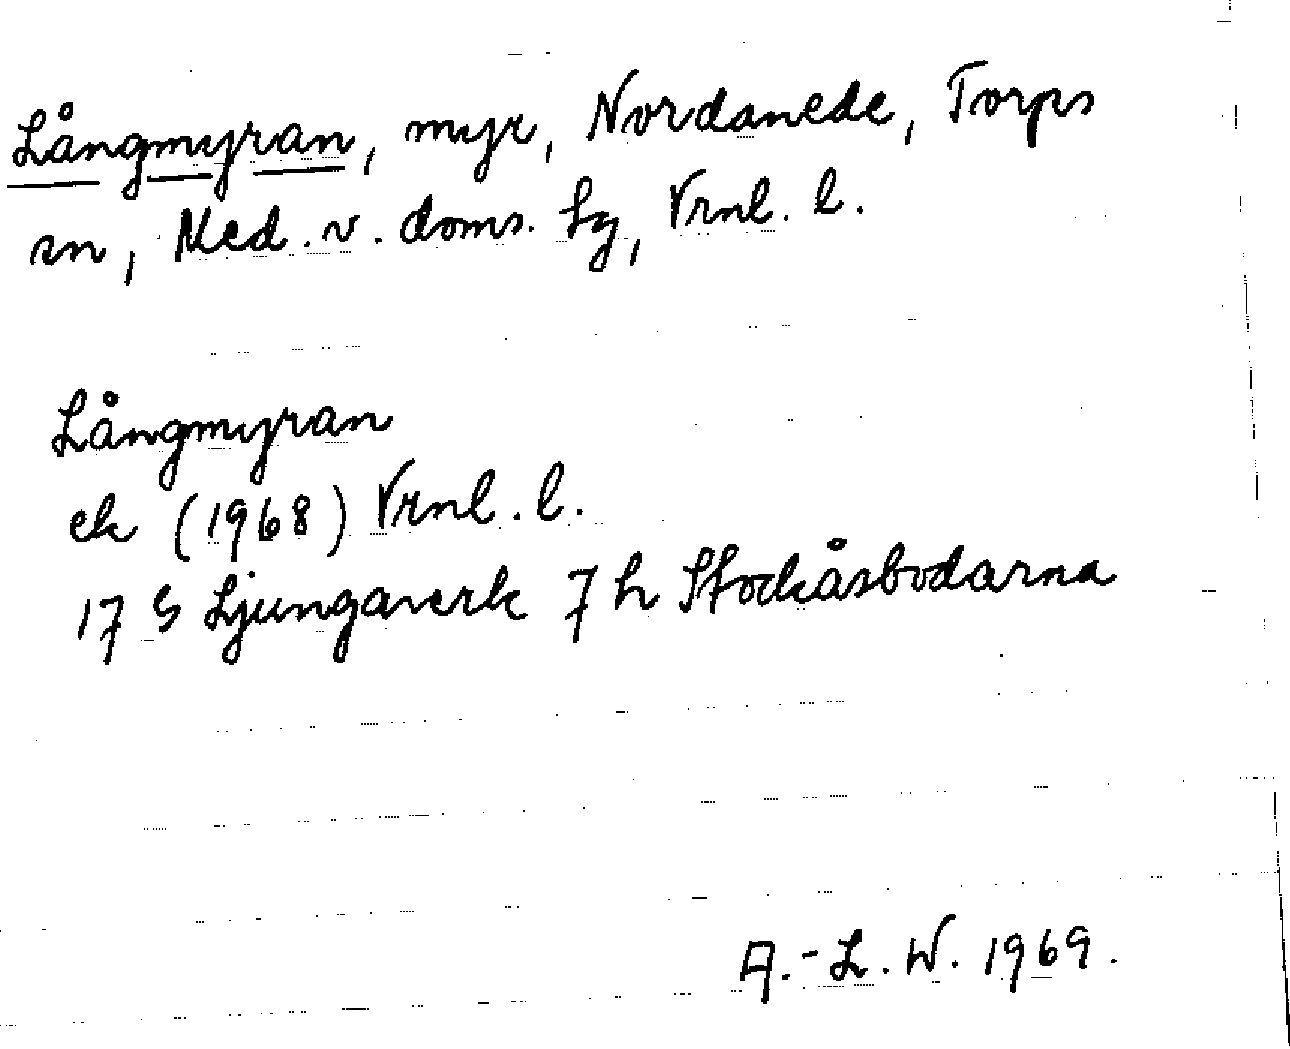 Långmyran, myr, Nordanede, Torps
sn, Med. v. doms. hg, Vrnl. l.
Långmyran
ek (1968) Vrnl. l.
17 G Ljungaverk 7 h Stockåsbodarna
A.-L. W. 1969.